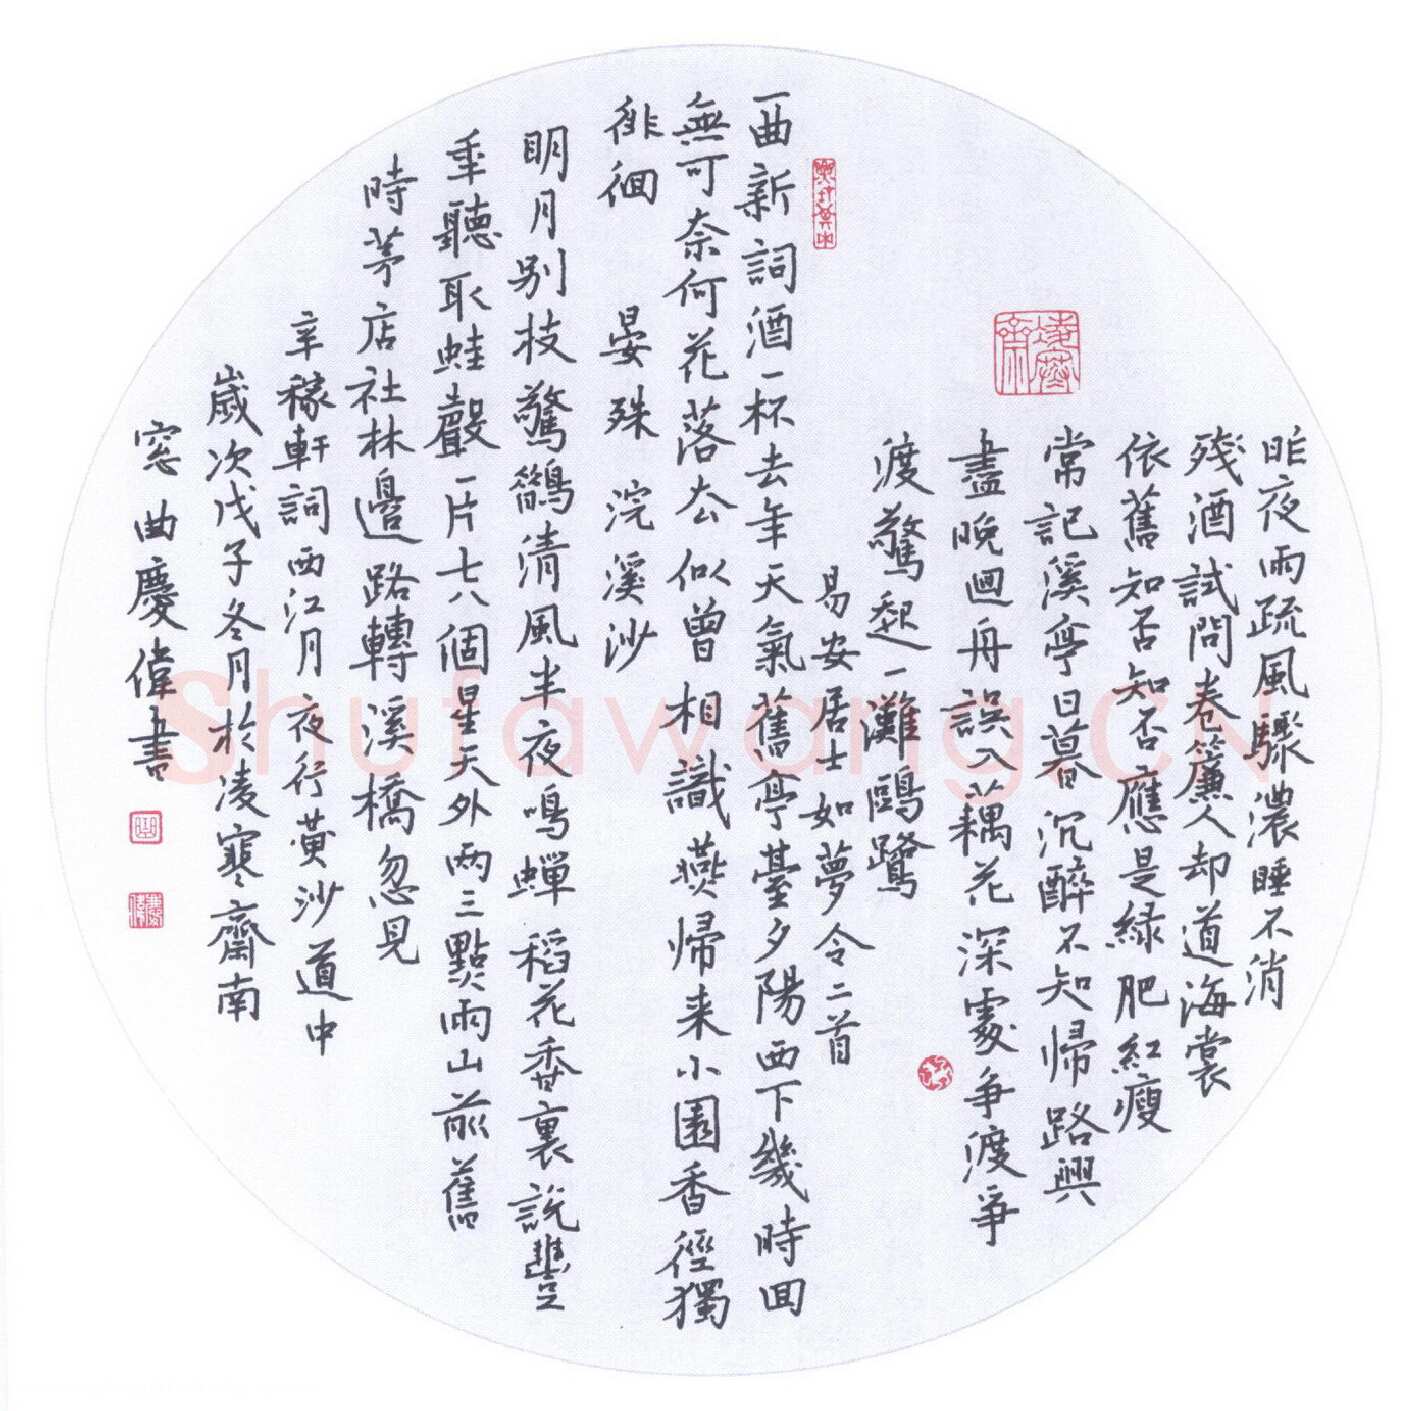 昨夜雨疏風驟濃睡不消
殘酒試問卷簾人却道海裳
依舊知否知否應是緑肥紅瘦
常記溪亭日暮沉醉不知歸路興
盡晚迴舟誤入藕花深處争渡爭
渡驚起一灘鷗鷺
易安居士如夢令二首
一曲新詞酒一杯去年天氣舊亭臺夕陽西下幾時回
無可奈何花落去似曾相識燕歸来小園香徑獨
徘徊 晏殊 浣溪沙
明月别枝驚鵲清風半夜鳴蟬稻花香裏説豐
年聽取蛙聲一片七八個星天外两三點雨山前舊
時茅店社林邊路轉溪橋忽見
辛稼軒詞西江月夜行黄沙道中
歲次戊子冬月於凌寒齋南
窓曲慶偉書
凌寒齋
Shufawang.CN